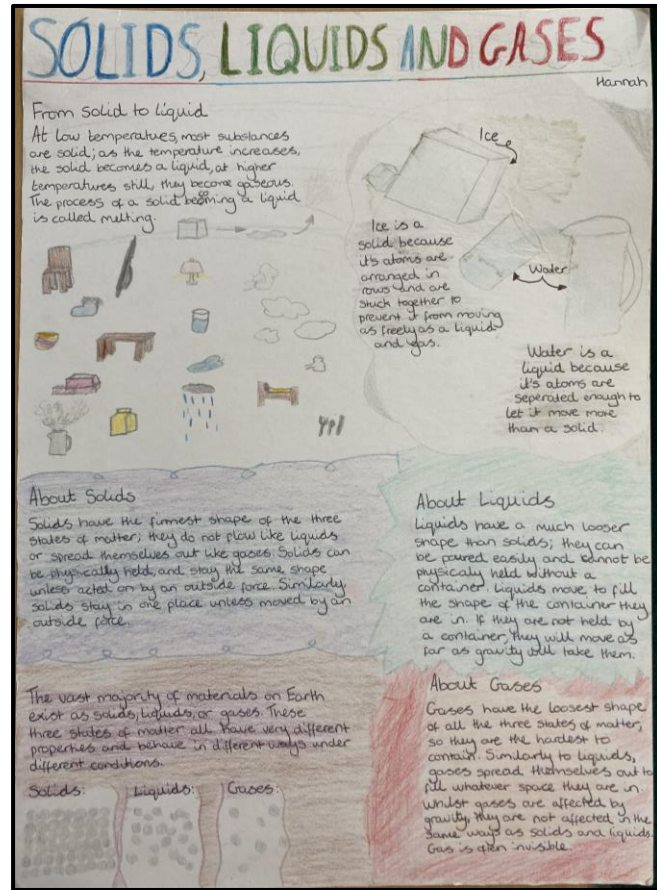 SOLIDS, LIQUIDS AND GASES
Hannah
From solid to liquid
At low temperatures, most substances
are solid; as the temperature increases,
the solid becomes a liquid, at higher
temperatures still, they become gaseous.
The process of a solid becoming a liquid
is called melting.
Ice
Ice is a
solid because
it's atoms are
arranged in
rows and are
stuck together to
prevent it from moving
as freely as a liquid
and gas.
Water
Water is a
liquid because
it's atoms are
seperated enough to
let it move more
than a solid.
About Solids
Solids have the firmest shape of the three
states of matter; they do not flow like liquids
or spread themselves out like gases. Solids can
be physically held, and stay the same shape
unless acted on by an outside force. Similarly
solids stay in one place unless moved by an
outside force.
About Liquids
Liquids have a much looser
shape than solids; they can
be poured easily and cannot be
physicaly held without a
container. Liquids move to fill
the shape of the container they
are in. If they are not held by
a container, they will move as
far as gravity will take them.
The vast majority of materials on Earth
exist as solids, liquids, or gases. These
three states of matter all have very different
properties and behave in different ways under
different conditions.
Solids:
Liquids:
Gases:
About Gases
Gases have the loosest shape
of all the three states of matter,
so they are the hardest to
contain. Similarly to liquids,
gases spread themselves out to
fill whatever space they are in
whilst gases are affected by
gravity, they are not affected in the
same ways as solids and liquids.
Gas is often invisible.